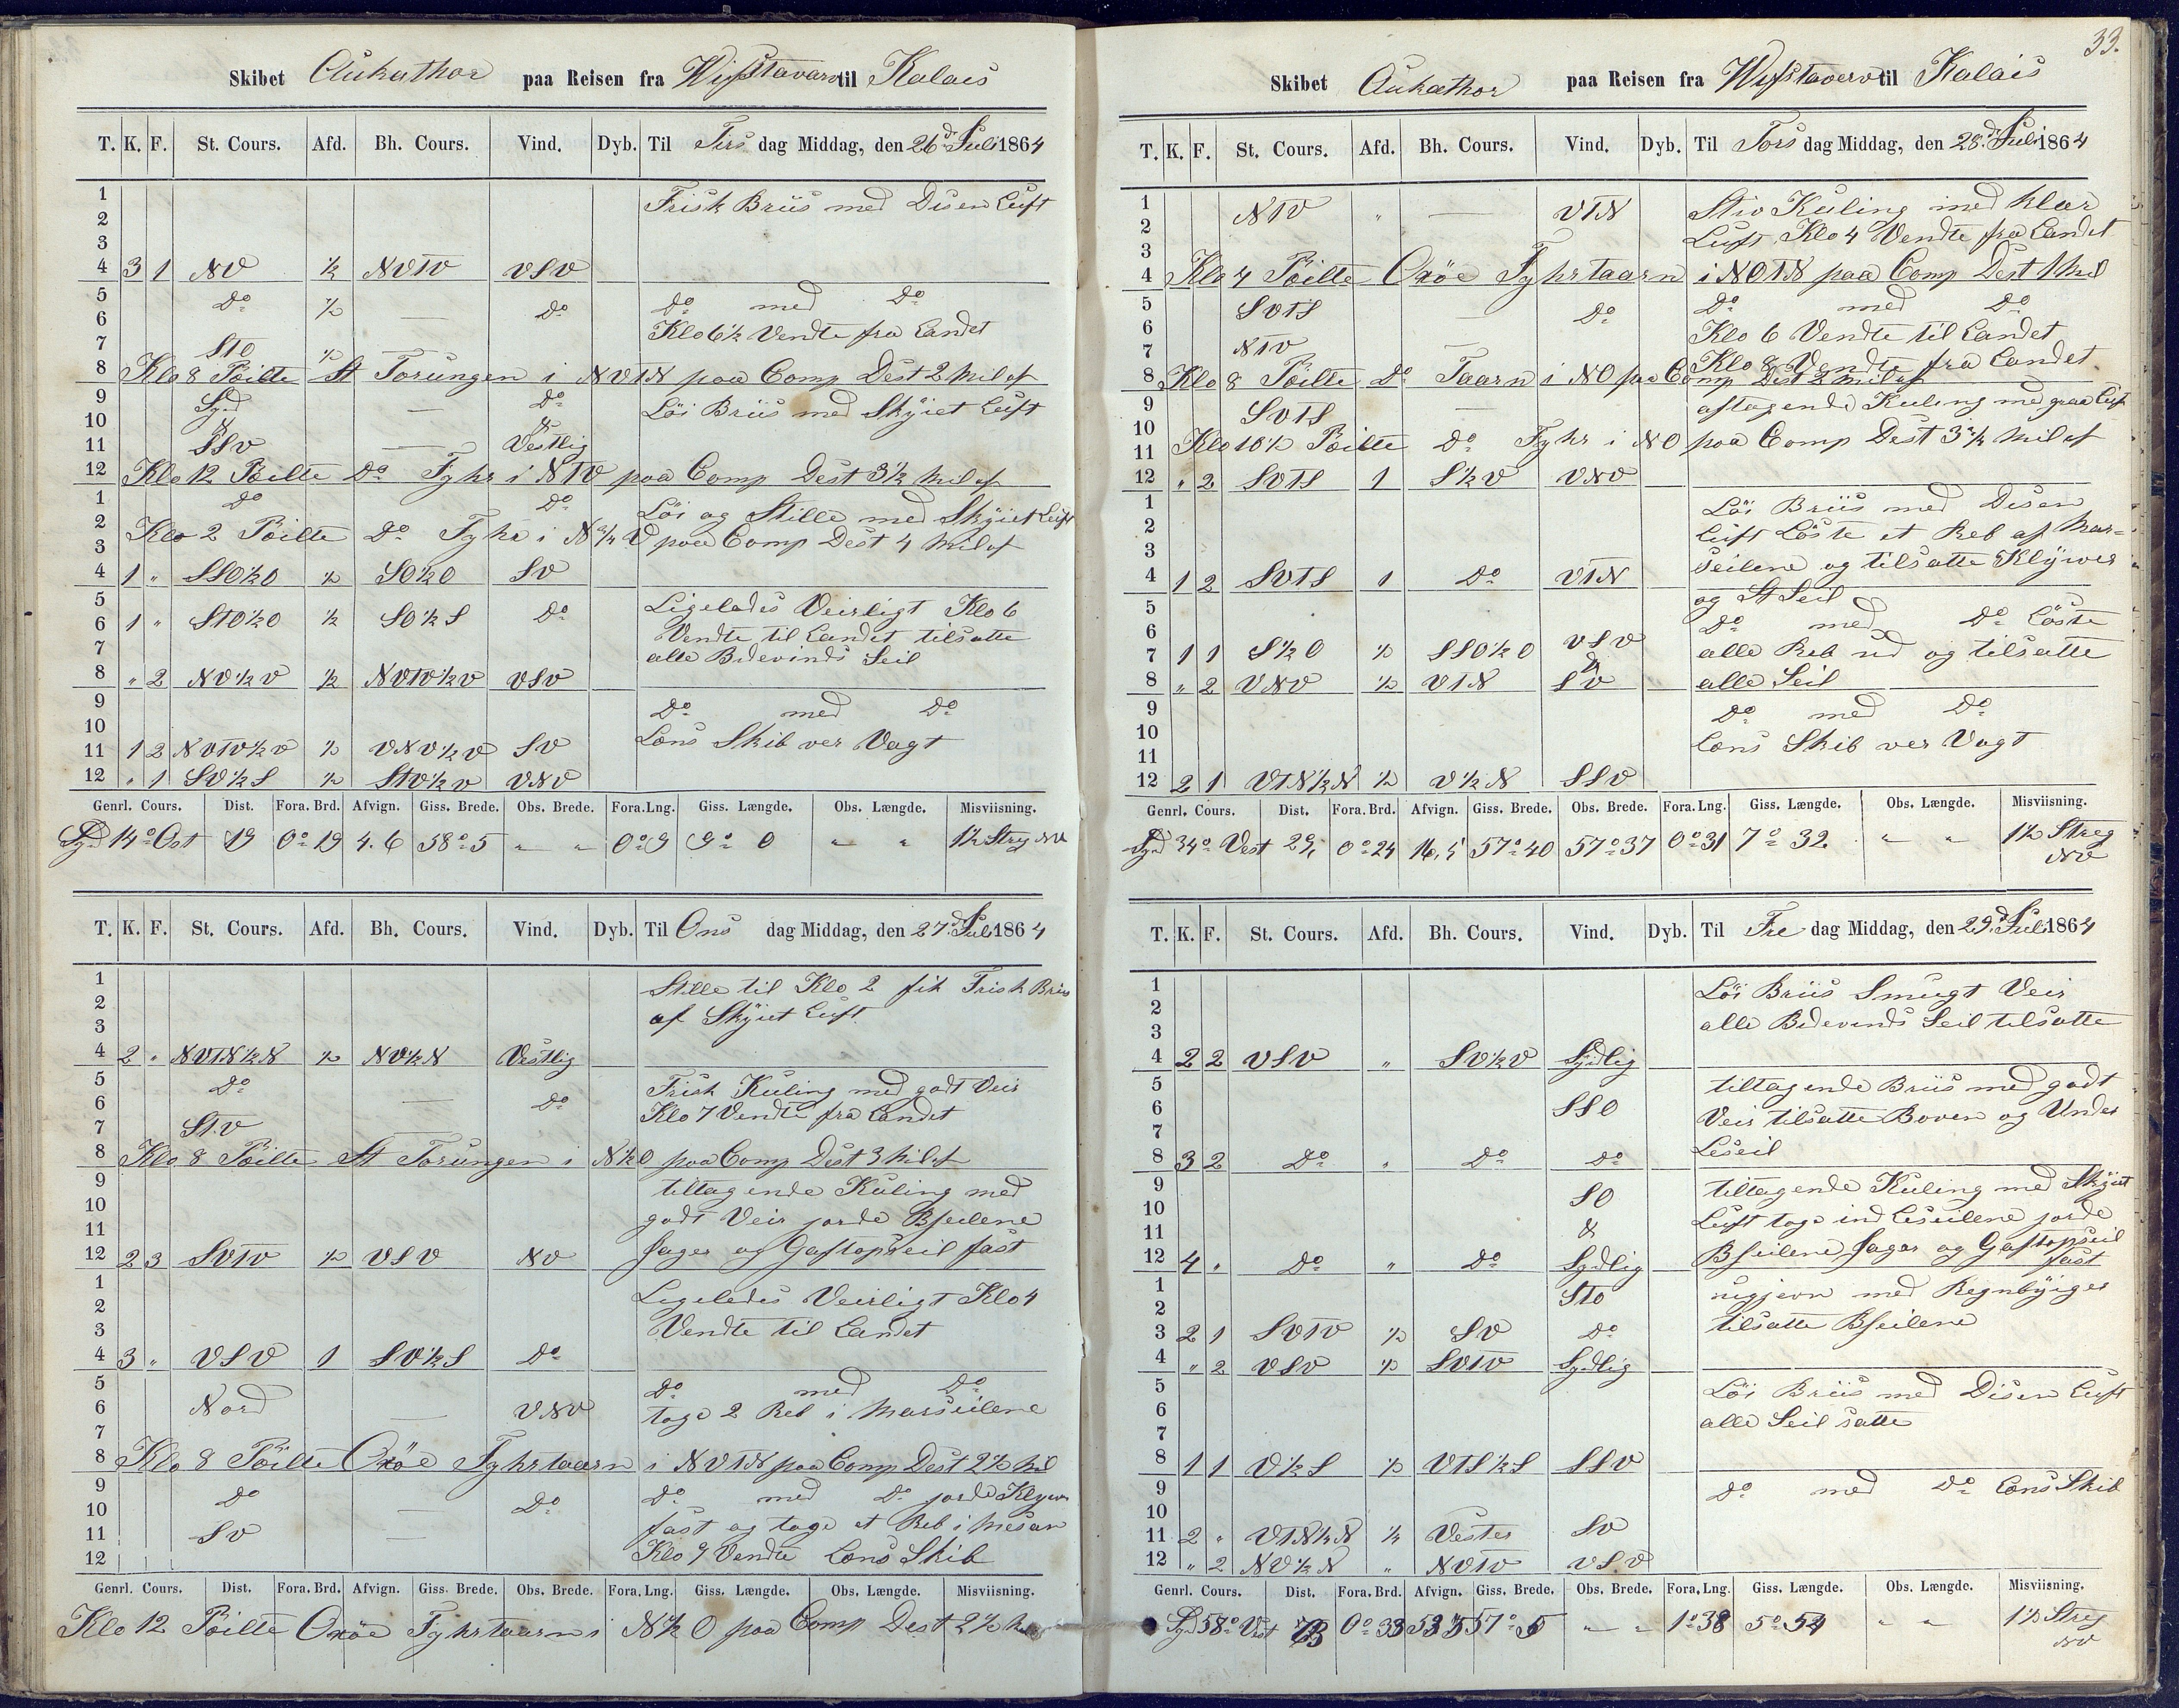 Skibet Aukathor paa Reisen fra Wifstavarv til Kalais
T. K. F. St. Cours. Afd. Bh. Cours. Vind. Dyb. Til Tirs dag Middag, den 26d Juli 1864
1 Frisk Briis med Disen Luft
2
3
4 3 1 NV ½ NVTV VSV
5 Do ½ — Do Do med Do
6 Klo 6½ Vendte fra Landet
7 STO ½ —
8 Klo 8 Pöilte St Torungen i NVTN paa Comp Dest 2 Mil af
9 Syd — Do Löi Briis med Skÿiet Luft
10 & &
11 SSV — Vestlig
12 Klo 12 Pöilte Do Fyhr i NTV paa Comp Dest 3½ Mil af
1 Do Do Löi og Stille med Skÿiet Luft
2 Klo 2 Pöilte Do Fyhr i N¾V paa Comp Dest 4 Mil af
3
4 1 " SSO½O ½ SO½O SV
5 Ligeledes Veirligt Klo 6
6 1 " STO½O ½ SO½S Do Vendte til Landet tilsatte
7 alle Bidevinds Seil
8 " 2 NV½V ½ NVTV½V VSV
9 Do med Do
10 Læns Skib ver Vagt
11 1 2 NVTV½V ½ VNV½V SV
12 " 1 SV½S ½ STV½V VNV
Genrl. Cours. Dist. Fora. Brd. Afvign. Giss. Brede. Obs. Brede. Fora. Lng. Giss. Længde. Obs. Længde. Misviisning.
Syd 14° Ost 19 0° 19 4.6 58° 5 " " 0° 9 9° 0 " " 1½ Streg NV
T. K. F. St. Cours. Afd. Bh. Cours. Vind. Dyb. Til Ons dag Middag, den 27d Juli 1864
1 Stille til Klo 2 fik Frisk Briis
2 af Skÿiet Luft
3
4 2 " NVTN½N ½ NV½N Vestlig
5 Do Frisk Kuling med godt Veir
6 — Do Klo 7 Vendte fra Landet
7 STV —
8 Klo 8 Pöilte St Torungen i N½O paa Comp Dest 3 Mil af
9 tiltagende Kuling med
10 godt Veir jorde Bseilene
11 Jager og Gaftopseil fast
12 2 3 SVTV ½ VSV NV
1 Ligeledes Veirligt Klo 4
2 Vendte til Landet
3
4 3 " VSV 1 SV½S Do
5 Do med Do
6 Nord — VNV toge 2 Reb i Marseilene
7
8 Klo 8 Pöilte Oxöe Fyhrtaarn i NVTN paa Comp Dest 2½ Mil
9 Do — Do Do med Do jorde Klyver
10 fast og toge et Reb i Mesan
11 SV — Klo 9 Vendte Læns Skib
12
Genrl. Cours. Dist. Fora. Brd. Afvign. Giss. Brede. Obs. Brede. Fora. Lng. Giss. Længde. Obs. Længde. Misviisning.
Klo 12 Pöilte Oxöe Fyhrtaarn i N½O paa Comp Dest 2½
33.
Skibet Aukathor paa Reisen fra Wifstaverv til Kalais
T. K. F. St. Cours. Afd. Bh. Cours. Vind. Dyb. Til Tors dag Middag, den 28d Juli 1864
1 NTV " — VTN Stiv Kuling med klar
2 Luft Klo 4 Vendte fra Landet
3
4 Klo 4 Pöilte Oxöe Fyhrtaarn i NOTN paa Comp Dest 1 Mil
5 SVTS — Do Do med Do
6 Klo 6 Vendte til Landet
7 NTV — Klo 8 Vendte fra Landet
8 Klo 8 Pöilte Do Taarn i NO paa Comp Dest 2 Mil af
9 SVTS — aftagende Kuling med graa Luft
10
11 Klo 10½ Pöilte Do Fyhr i NO paa Comp Dest 3¾ Mil af
12 " 2 SVTS 1 S½V VNV
1 Löi Briis med Disen
2 Luft Löste et Reb af Mar=
3 seilene og tilsatte Klÿwer
4 1 2 SVTS 1 Do VTN
5 og St Seil
6 Do med Do Löste
7 1 1 S½O ½ SSO½O VSV alle Reb ud og tilsatte
8 " 2 VNV ½ VTN & SV alle Seil
9 Do med Do
10 Læns Skib ver Vagt
11
12 2 1 VTN½N ½ V½N SSV
Genrl. Cours. Dist. Fora. Brd. Afvign. Giss. Brede. Obs. Brede. Fora. Lng. Giss. Længde. Obs. Længde. Misviisning.
Syd 34° Vest 29, 0° 24 16,5 57° 40 57° 37 0° 31 7° 32. " " 1½ Streg NV
T. K. F. St. Cours. Afd. Bh. Cours. Vind. Dyb. Til Fre dag Middag, den 29d Juli 1864
1 Löi Briis Smugt Veir
2 alle Bidevinds Seil tilsatte
3
4 2 2 VSV " SV½V Sÿdlig
5 tiltagende Briis med godt
6 SSO Veir tilsatte Boven og Under
7 Leseil
8 3 2 Do " Do Do
9 SO tiltagende Kuling med Skÿiet
10 Luft toge ind Leseilene jorde
11 & Bseilene Jager og Gaftopseil fast
12 4 " Do " Do Sydlig
1 STO uigjevn med Regnbÿiger
2 tilsatte Bseilene
3 2 1 SVTV ½ SV Do
4 " 2 VSV ½ SVTV Sydlig
5 Löi Briis med Disen Luft
6 alle Seil satte
7
8 1 1 V½S ½ VTS½S SSV
9 Do med Do Læns Skib
10
11 2 " VTN½N ½ Vester SV
12 " 2 NV½N " NVTV VSV
Genrl. Cours. Dist. Fora. Brd. Afvign. Giss. Brede. Obs. Brede. Fora. Lng. Giss. Længde. Obs. Længde. Misviisning.
Syd 58° Vest 0° 33 57° 5 " " 1° 38 5° 54 " " 1½ Streg NV